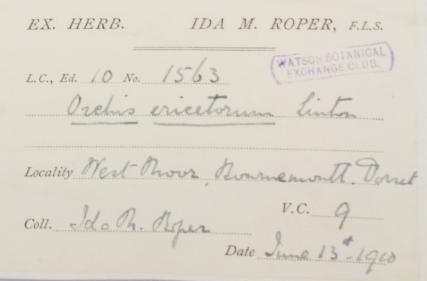 EX. HERB. IDA M. ROPER, F.L.S.
WATSON BOTANICAL
EXCHANGE CLUB.
L.C., Ed. 10 No. 1563
Orchis ericetorum Linton
Locality West Moor, Bournemouth. Dorset
V.C. 9
Coll. Ida M. Roper
Date June 13th 1910